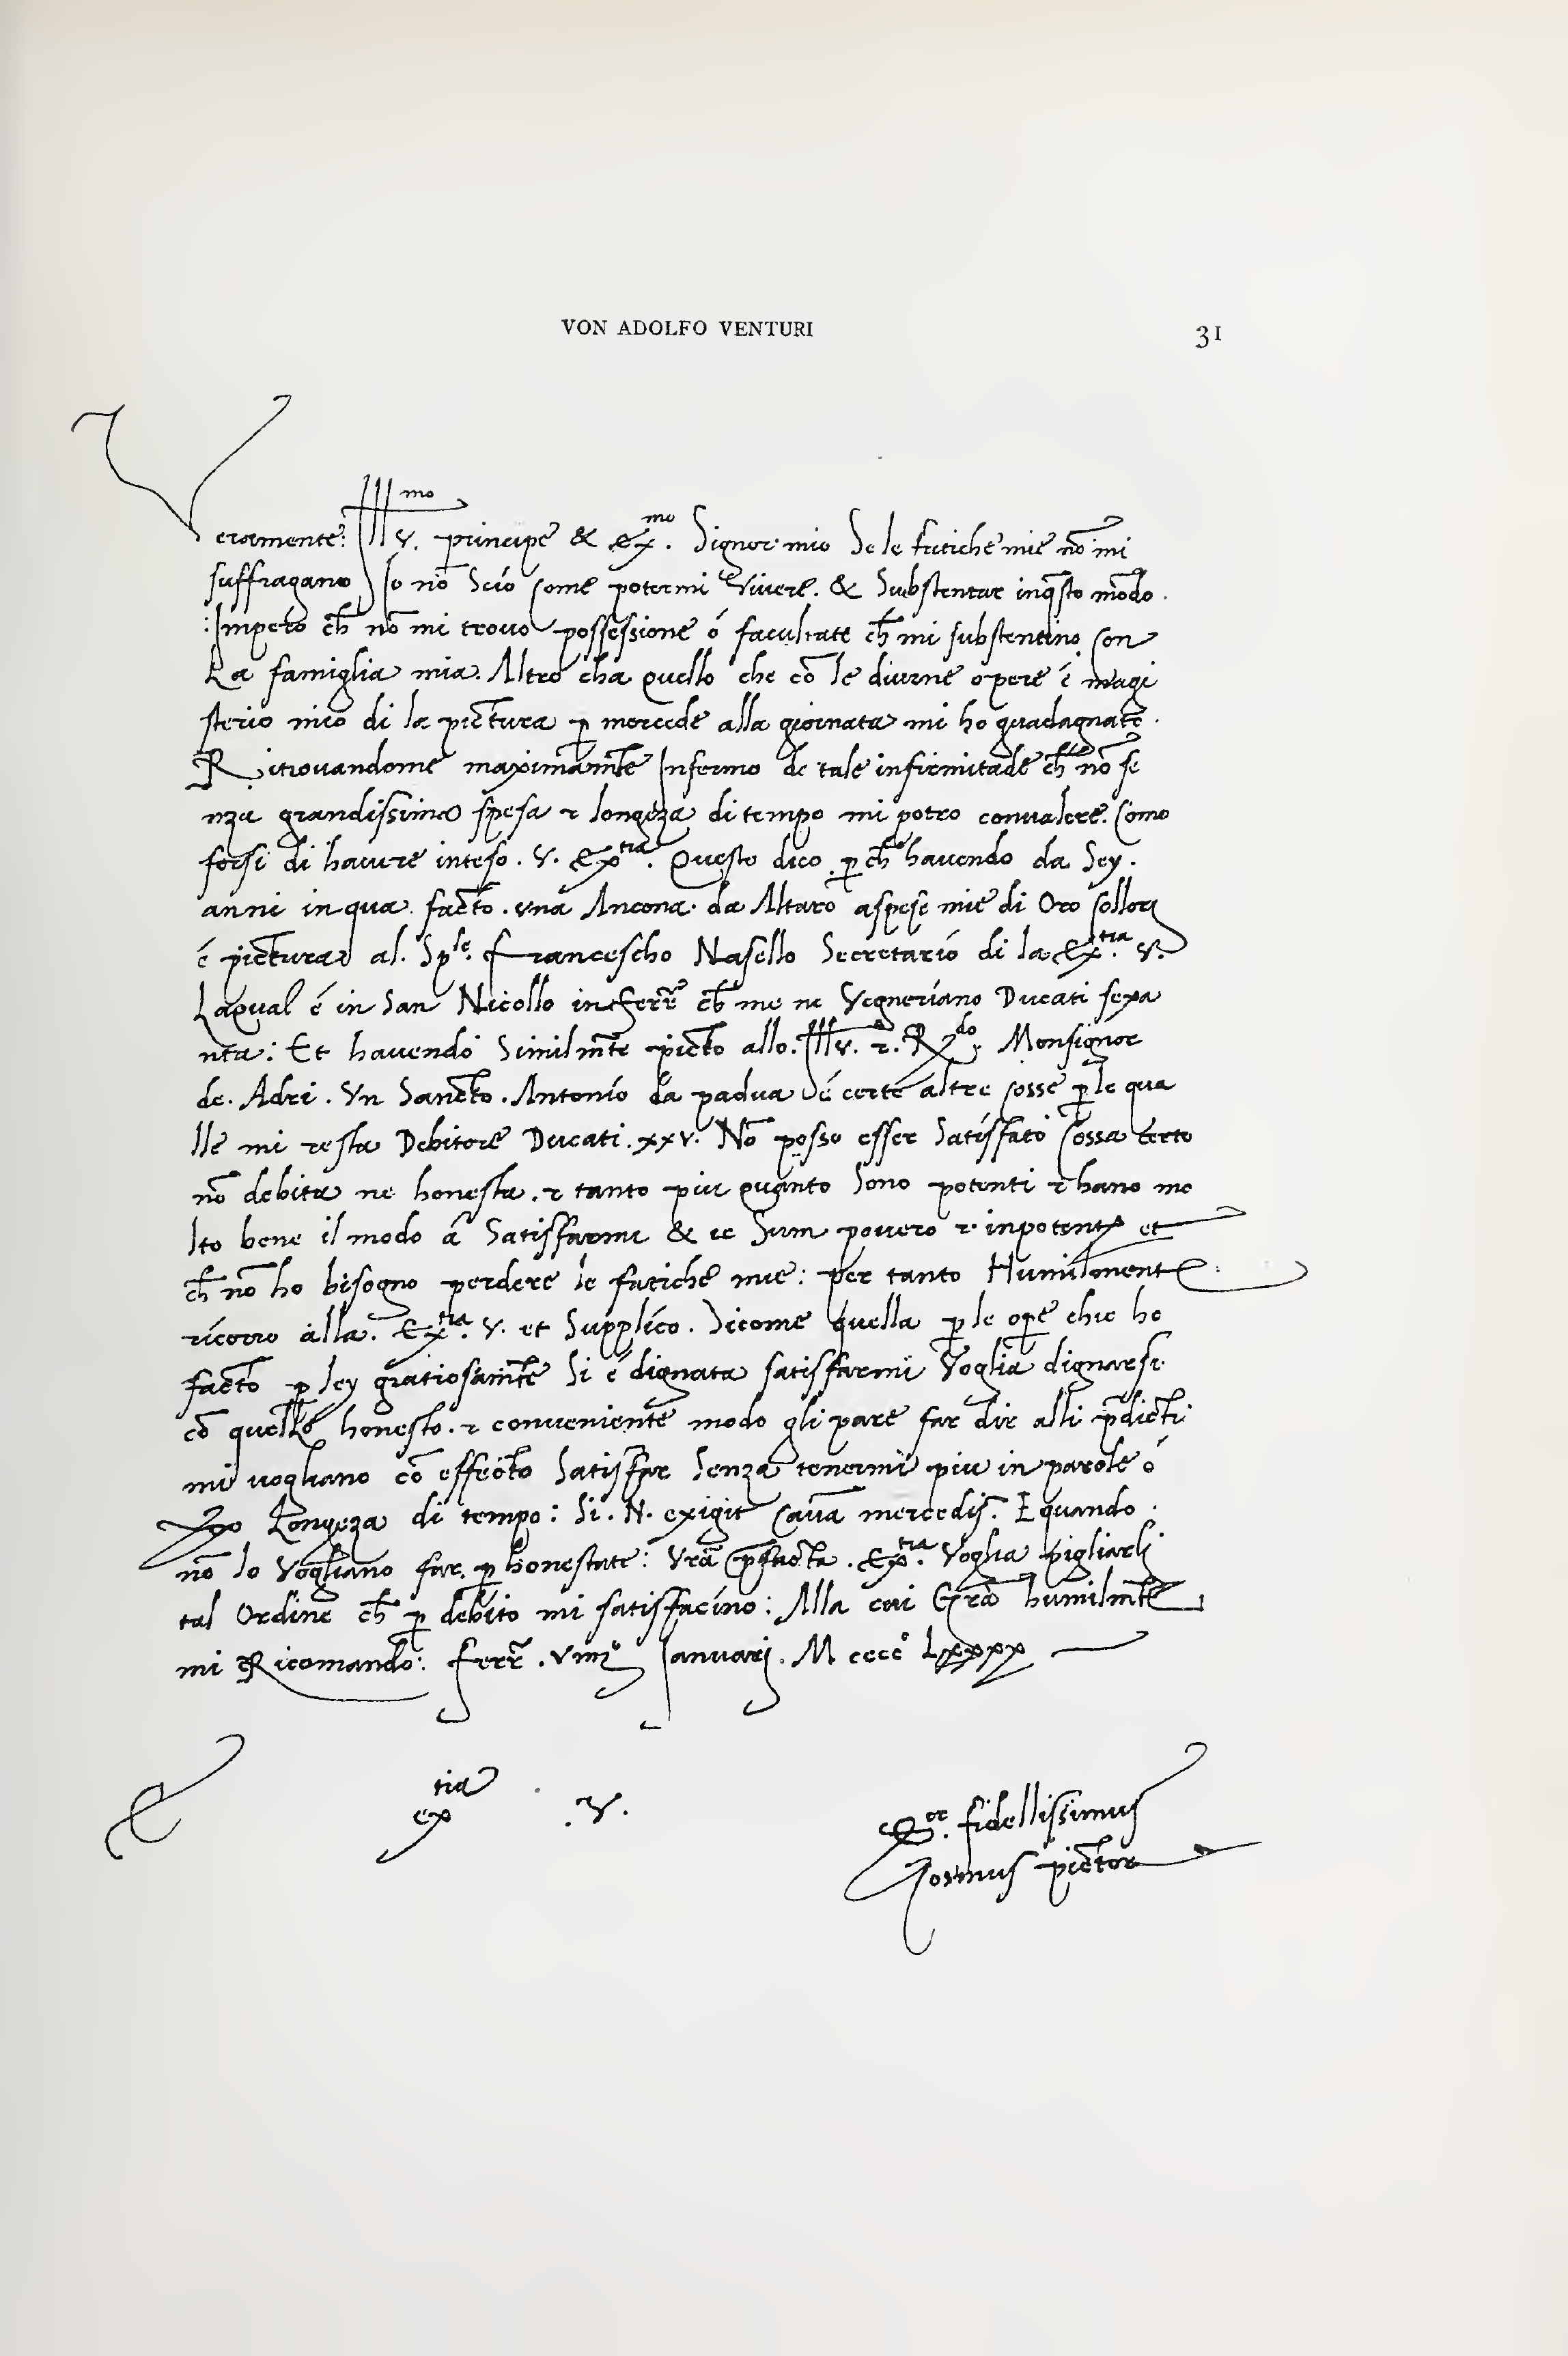 VON ADOLFO VENTURI
31
Veramente: Illmo v. principe & exmo. Signor mio Se le fatiche mie nō mi
suffragano Io nō Scio Come potermi Vivere. & Substentar inq̄sto mōdo.
:Imperò ch̄ nō mi trovo possessione ó facultate ch̄ mi substentino Con
La famiglia mia. Altro cha quello che cō le diurne opere é magi
sterio mio di la pictura p̱ mercede alla giornata mi ho guadagnato.
Ritrouandome maximam̄te Infermo de tale infirmitade ch̄ nō se
nza grandissima spesa & longeza di tempo mi potro convalere. Como
forsi di havure inteso. V. Extia. Questo dico p̱ch̄ havendo da Sey.
anni in qua facto. una Ancona. da Altaro aspese mie di Oro Collori
é picturar al. Sple. francescho Nasello Secretario di la Extia. V.
Laqual é in San Nicollo in ferr̄ ch̄ me ne Vegneriano Ducati sexa
nta: Et havendo Similm̄te picto allo. Ill v. & Rdo. Monsignor
de. Adri. Vn Sancto. Antonio da padua é certe altre cosse p̱ le qua
lle mi resta Debitore Ducati. xxv. Nō posso esser Satisfato Cossa certo
nō debita ne honesta. & tanto piu quanto Sono potenti & hano mo
lto bene il modo á Satisfarmi & io Sum povero & inpotente et
ch̄ nō ho bisogno perdere le fatiche mie: per tanto Humilmente
ricorro alla. Extia. V. et Supplico. Sicome quella p̱ le ope che ho
facto p̱ ley gratiosam̄te Si é dignata satisfarmi Voglia dignarsi
cō quello honesto. & conveniente modo gli pare far dir alli p̄dicti
mi vogliano cō effecto Satisfar Senza tenermi piu in parole ó
Longeza di tempo: Si. N. exigit Cauā mercedis. E quando
nō lo Vogliano far. p̱ honestate: Vrā p̄facta. Extia. Voglia pigliarli
tal Ordine ch̄ p̱ debito mi satisfacino: Alla cui Grā humilm̄te
mi Ricomando: ferr̄. Januarj. M cccc° Lxxxx
E extia . V.
Sor. fidellissimus
Cosmus pictor